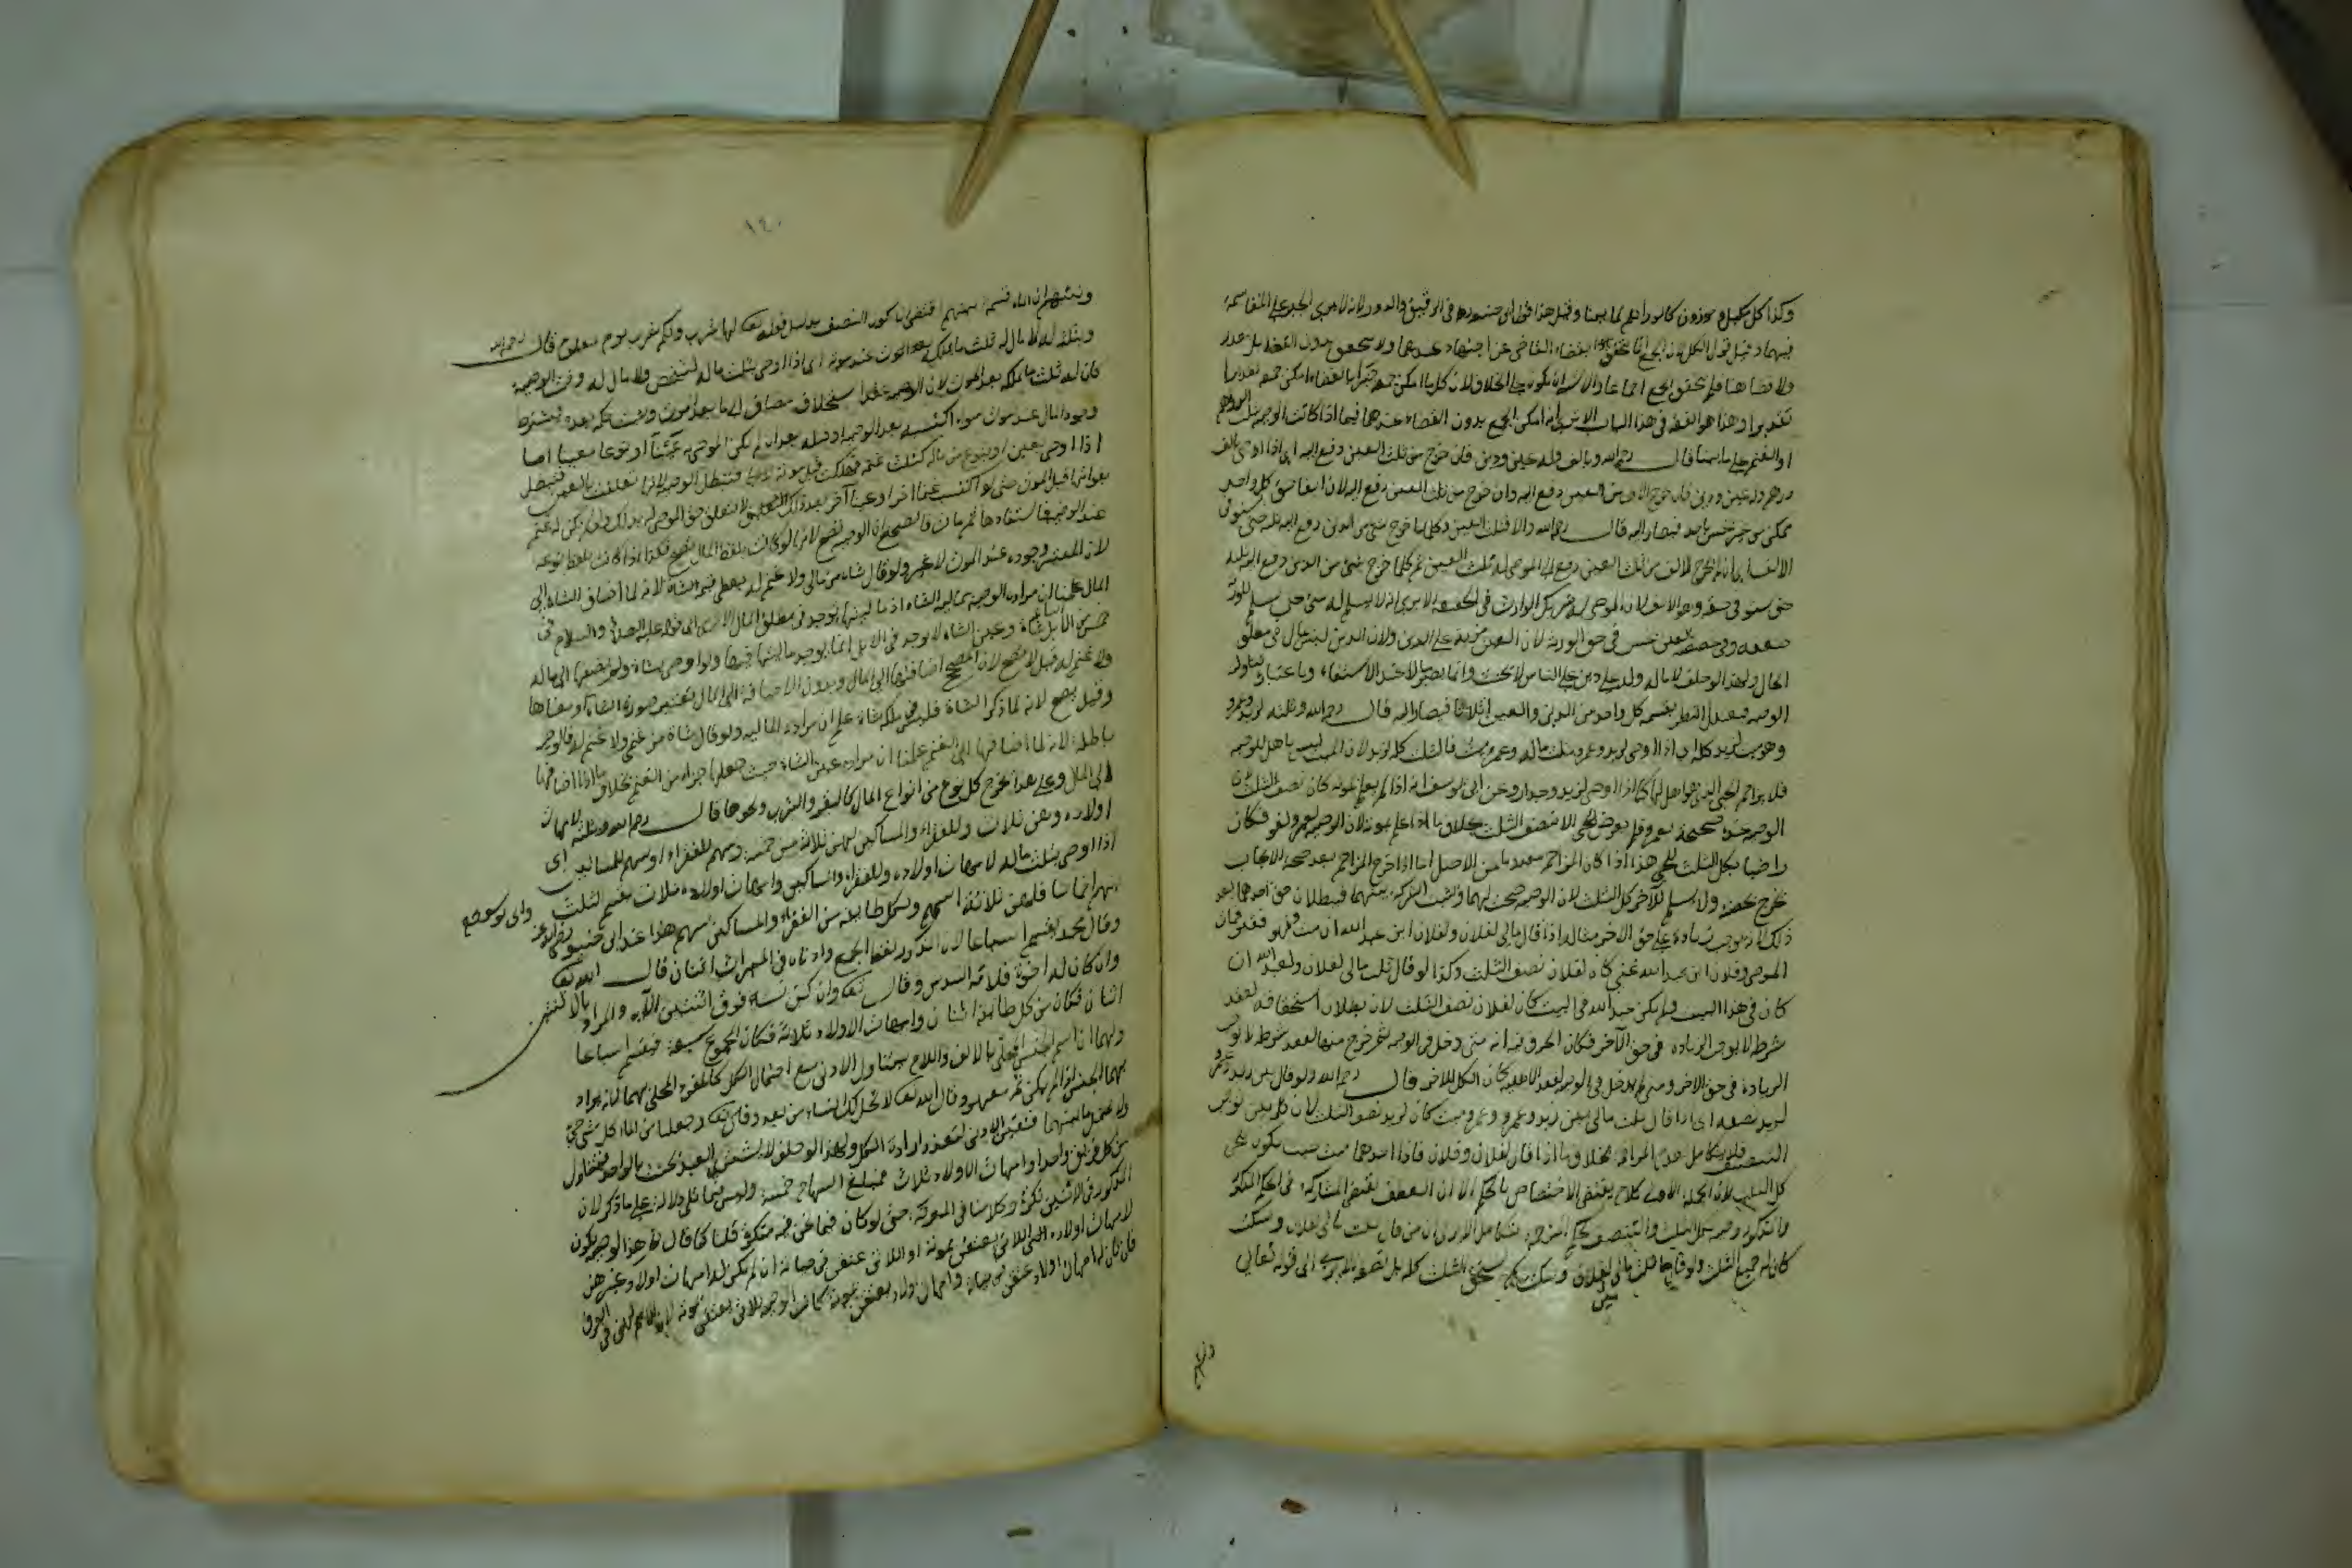 وكذا كل مكيل وموزون كالدراهم لما بينا وقيل هذا قول ابي حنيفة في الرقيق والدور لانه لا يرى الجبر على المقاسمة
فيهما وقيل قول الكل لان الجمع انما يتحقق بقضاء القاضي عن اجتهاد عندهما ولا يتحقق بدون القضاء بل يتعذر
ولا قضاء هنا فلم يتحقق الجمع اجماعا
تقديرا وهذا هو الفقه في هذا الباب الا ترى انه امكن الجمع بدون القضاء عندهما فيما اذا كانت الوصية بثلث الدراهم
او الغنم على ما بينا قال رحمه الله وبالف وله عين ودين فان خرج من ثلث العين دفع اليه اي اذا اوصى بالف
درهم وله عين ودين فان خرج الالف من العين دفع اليه وان خرج من ثلث العين دفع اليه لان ايفاء حق كل واحد
ممكن من غير بخس باحد فيصار اليه قال رحمه الله والا فثلث العين وكلما خرج شيء من الدين دفع اليه ثلثه حتى يستوفي
الالف اي ان لم يخرج الالف من ثلث العين دفع الى الموصى له ثلث العين ثم كلما خرج شيء من الدين دفع اليه ثلثه
حتى يستوفي حقه وهو الالف لان الموصى له شريك الوارث في الحقيقة الا يرى انه لا يسلم له شيء حتى يسلم للورثة
ضعفه وفي تخصيصه بالعين بخس في حق الورثة لان العين مزية على الدين ولان الدين ليس بمال في مطلق
الحال ولهذا لو حلف لا مال له وله دين على الناس لا يحنث وانما يصير مالا عند الاستيفاء وباعتبار تناوله
الوصية فيعدل النظر بقسمة كل واحد من الدين والعين اثلاثا فيصار اليه قال رحمه الله وبثلثه لزيد وعمرو
وهو ميت لزيد كله اي اذا اوصى لزيد وعمرو بثلث ماله وعمرو ميت فالثلث كله لزيد لان الميت ليس باهل للوصية
فلا يزاحم الحي الذي هو اهل لها كما اذا اوصى لزيد وجدار وعن ابي يوسف انه اذا لم يعلم بموته كان نصف الثلث لان
الوصية عنده صحيحة لعمرو فلم يرض للحي الا نصف الثلث بخلاف ما اذا علم بموته لان الوصية لعمرو لغو فكان
راضيا بكل الثلث للحي هذا اذا كان المزاحم معدوما من الاصل اما اذا خرج المزاحم بعد صحة الايجاب
يخرج بحصته ولا يسلم للآخر كل الثلث لان الوصية صحت لهما وثبت الشركة بينهما فبطلان حق احدهما بعد
ذلك لا يوجب زيادة على حق الآخر مثاله اذا قال ثلث مالي لفلان ولفلان ابن عبد الله ان مت وهو فقير فمات
الموصي وفلان ابن عبد الله غني كان لفلان نصف الثلث وكذا لو قال ثلث مالي لفلان ولعبد الله ان
كان في هذا البيت ولم يكن عبد الله في البيت كان لفلان نصف الثلث لان بطلان استحقاقه لفقد
شرطه لا يوجب الزيادة في حق الآخر فكان الحرف فيه انه متى دخل في الوصية ثم خرج منها لفقد شرط لا يوجب
الزيادة في حق الآخر ومتى لم يدخل في الوصية لفقد الاهلية كان الكل للآخر قال رحمه الله ولو قال بين زيد وعمرو
لزيد نصفه اي اذا قال ثلث مالي بين زيد وعمرو وعمرو ميت كان لزيد نصف الثلث لان كلمة بين توجب
التنصيف فلا يتكامل لعدم المزاحم بخلاف ما اذا قال لفلان وفلان فاذا احدهما ميت حيث يكون للحي
كل الثلث لان الجملة الاولى كلام يقتضي الاختصاص بالحكم الا ان العطف يقتضي المشاركة في الحكم المذكور
والمذكور وصية بكل الثلث والتنصيف بحكم المزاحمة الا ترى ان من قال ثلث مالي لفلان وسكت
كان له جميع الثلث ولو قال ثلث مالي بين فلان وسكت لم يستحق الثلث كله بل نصفه الا ترى الى قوله تعالى
ونبئهم
١٤٠
ونبئهم ان الماء قسمة بينهم اقتضى ان يكون النصف بدليل قوله تعالى لها شرب ولكم شرب يوم معلوم قال رحمه الله
وبثلثه له ولا مال له ثلث ما يملكه عند موته اي اذا اوصى بثلث ماله لشخص ولا مال له وقت الوصية
كان له ثلث ما يملكه بعد الموت لان الوصية عقد استخلاف مضاف الى ما بعد الموت ويثبت حكمه بعده فيشترط
وجود المال عند موت سواء اكتسبه بعد الوصية او قبله بعد ان لم يكن الموصى به عينا او نوعا معينا اما
اذا اوصى بعين او بنوع من ماله كثلث غنمه فهلكت قبل موته فتبطل الوصية لانها تعلقت بالعين فتبطل
بفواتها قبل الموت حتى لو اكتسب غنما اخرا او عينا آخر بعد ذلك لا يتعلق حق الموصى له بذلك ولو لم يكن له غنم
عند الوصية فاستفادها ثم مات فالصحيح ان الوصية تصح لانها لو كانت بلفظ المال تصح فكذا اذا كانت بلفظ نوعه
لان المعتبر وجوده عند الموت لا غير ولو قال شاة من مالي ولا غنم له يعطى قيمة الشاة لانه لما اضاف الشاة الى
المال علمنا ان مراده الوصية بمالية الشاة اذ ماليتها توجد في مطلق المال الا ترى الى قوله عليه الصلاة والسلام في
خمس من الابل شاة وعين الشاة لا يوجد في الابل انما يوجد ماليتها فيها ولو اوصى بشاة ولم يضفها الى ماله
ولا غنم له قيل لا يصح لان المصحح اضافتها الى المال وبدون الاضافة الى المال يعتبر صورة الشاة ومعناها
وقيل يصح لانه لما ذكر الشاة فليس في ملكه شاة علم ان مراده المالية ولو قال شاة من غنمي ولا غنم له فالوصية
باطلة لانه لما اضافها الى الغنم علمنا ان مراده عين الشاة حيث جعلها جزءا من الغنم بخلاف ما اذا اضافها
الى المال وعلى هذا يخرج كل نوع من انواع المال كالبقر والثوب ونحوها قال رحمه الله وبثلثه لامهات
اولاده وهن ثلاث وللفقراء والمساكين لهن ثلاثة من خمسة وسهم للفقراء وسهم للمساكين اي
اذا اوصى بثلث ماله لامهات اولاده وللفقراء والمساكين وامهات اولاده ثلاث يقسم الثلث
بينهم اخماسا فلهن ثلاثة اسهم ولكل طائفة من الفقراء والمساكين سهم هذا عند ابي حنيفة وابي يوسف
وقال محمد يقسم اسباعا لان المذكور لفظ الجمع وادناه في الميراث اثنان قال الله تعالى
وان كان له اخوة فلامه السدس وقال تعالى وان كن نساء فوق اثنتين الآية والمراد بالاثنتين
اثنان فكان من كل طائفة اثنان وامهات الاولاد ثلاثة فكان المجموع سبعة فيقسم اسباعا
ولهما ان اسم الجنس المحلى بالالف واللام يتناول الادنى مع احتمال الكل كالمفرد المحلى بهما لانه يراد
بهما الجنس اذا لم يكن ثم معهود وقال الله تعالى لا تحل لك النساء من بعد وقال تعالى وجعلنا من الماء كل شيء حي
ولا يحتمل ما بينهما فتعين الادنى لتعذر ارادة الكل ولهذا لو حلف لا يشتري العبيد يحنث بالواحد فيتناول
من كل فريق واحدا وامهات الاولاد ثلاث فمبلغ السهام خمسة وليس فيما تلي دلالة على ما ذكر لان
المذكور في الآيتين نكرة وكلامنا في المعرفة حتى لو كان فيما نحن فيه منكرا قلنا كما قال ثم هذه الوصية يكون
لامهات اولاده التي اللاتي يعتقن بموته او اللاتي عتقن في حياته ان لم يكن له امهات اولاد غيرهن
فان كان له امهات اولاد عتقن في حياته وامهات اولاد يعتقن بموته كانت الوصية للاتي يعتقن بموته لان الاسم لهن في العرف